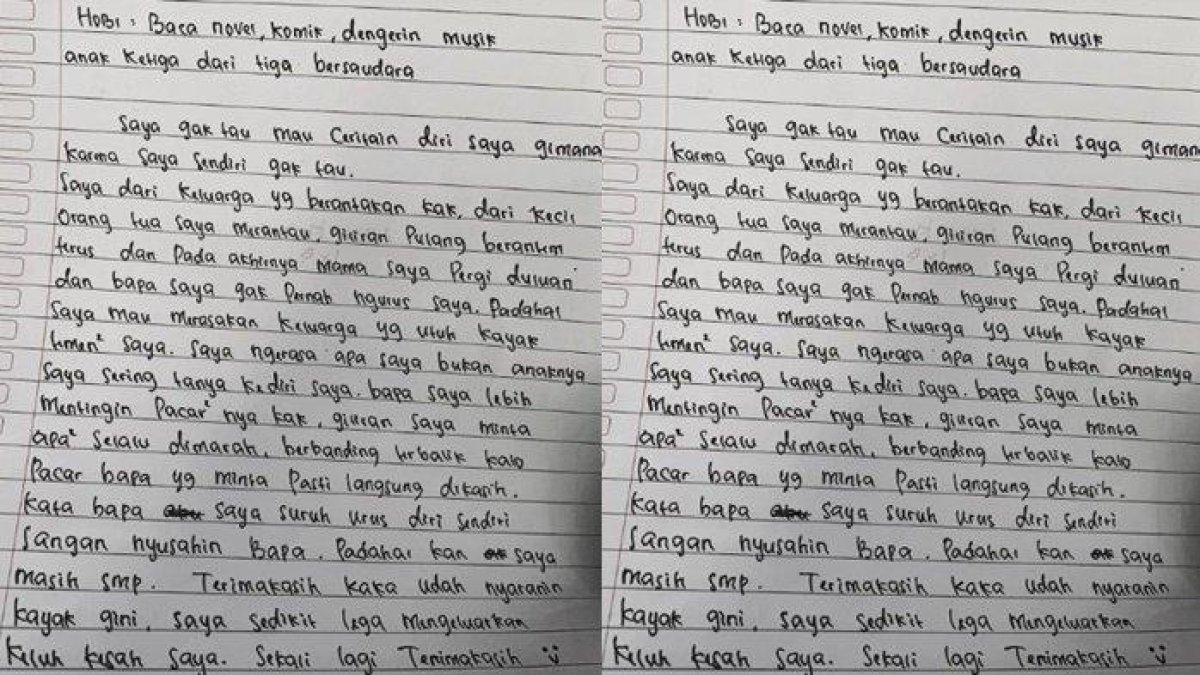 HOBI : Baca novel, komik, dengerin musik
anak ketiga dari tiga bersaudara
Saya gak tau mau Ceritain diri saya gimana
karna saya sendiri gak tau.
Saya dari keluarga yg berantakan kak, dari kecil
Orang tua saya merantau, giliran Pulang berantem
terus dan Pada akhirnya mama saya Pergi duluan
dan bapa saya gak Pernah ngurus saya. Padahal
Saya mau merasakan keluarga yg utuh kayak
temen² saya. saya ngerasa apa saya bukan anaknya
Saya sering tanya kediri saya. bapa saya lebih
mentingin Pacar² nya kak, giliran saya minta
apa² selalu dimarah, berbanding terbalik kalo
Pacar bapa yg minta Pasti langsung dikasih.
kata bapa saya suruh urus diri sendiri
Jangan nyusahin Bapa. Padahal kan saya
masih smp. Terimakasih kaka udah nyaranin
kayak gini, saya sedikit lega mengeluarkan
keluh kesah saya. Sekali lagi Terimakasih :)
HOBI : Baca novel, komik, dengerin musik
anak ketiga dari tiga bersaudara
Saya gak tau mau Ceritain diri saya giman
karna saya sendiri gak tau.
Saya dari keluarga yg berantakan kak, dari kecil
Orang tua saya merantau, giliran Pulang berantem
terus dan Pada akhirnya mama saya Pergi duluan
dan bapa saya gak Pernah ngurus saya. Padahal
Saya mau merasakan keluarga yg utuh kayak
temen² saya. saya ngerasa apa saya bukan anaknya
Saya sering tanya kediri saya. bapa saya lebih
mentingin Pacar² nya kak, giliran saya minta
apa² selalu dimarah, berbanding terbalik kalo
Pacar bapa yg minta Pasti langsung dikasih.
kata bapa saya suruh urus diri sendiri
Jangan nyusahin Bapa. Padahal kan saya
masih smp. Terimakasih kaka udah nyaranin
kayak gini, saya sedikit lega mengeluarkan
keluh kesah saya. Sekali lagi Terimakasih :)